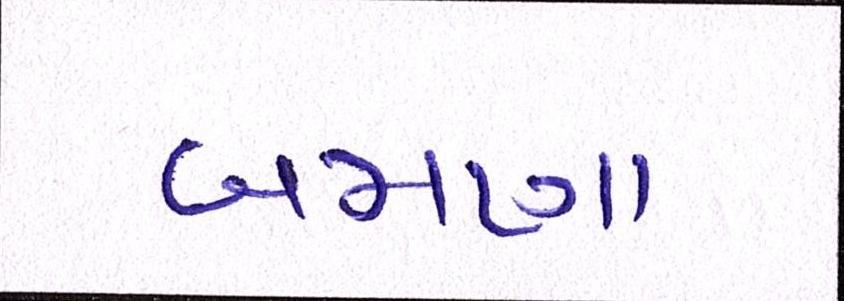 બમણા